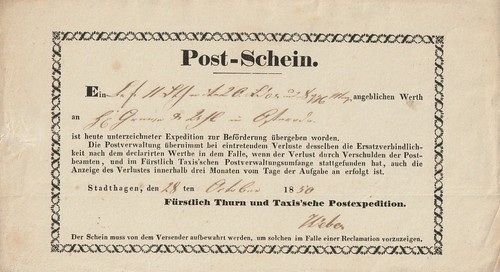 Post-Schein.
Ein angeblichen Werth
an
ist heute unterzeichneter Expedition zur Beförderung übergeben worden.
Die Postverwaltung übernimmt bei eintretendem Verluste desselben die Ersatzverbindlich-
keit nach dem declarirten Werthe in dem Falle, wenn der Verlust durch Verschulden der Post-
beamten, und im Fürstlich Taxis'schen Postverwaltungsumfange stattgefunden hat, auch die
Anzeige des Verlustes innerhalb drei Monaten vom Tage der Aufgabe an erfolgt ist.
Stadthagen, den 28 ten October 1850
Fürstlich Thurn und Taxis'sche Postexpedition.
Der Schein muss von dem Versender aufbewahrt werden, um solchen im Falle einer Reclamation vorzuzeigen.